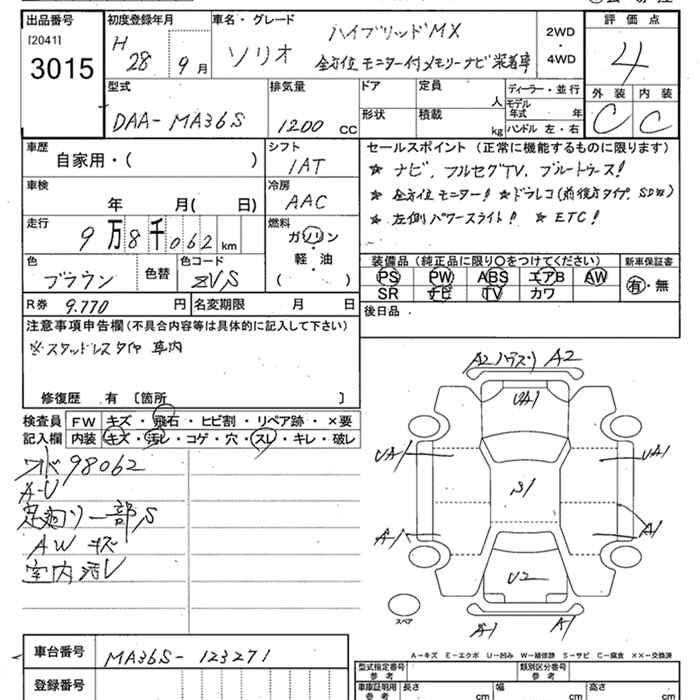 出品番号
[2041]
3015
初度登録年月
H 28 9月
車名・グレード
ソリオ
ハイブリッドMX
全方位モニター付メモリーナビ装着車
2WD
・
4WD
評価点
4
型式
DAA-MA36S
排気量
1200 cc
ドア
形状
定員
人
積載
kg
ディーラー・並行
モデル年式 年
ハンドル 左・右
外装 内装
C C
車歴
自家用・( )
シフト
1AT
車検
年 月( 日)
冷房
AAC
走行
9万8千062km
燃料
ガソリン
軽・油
( )
色
ブラウン
色替
色コード
ZVS
R券 9.770 円
名変期限 月 日
セールスポイント(正常に機能するものに限ります)
★ ナビ、フルセグTV、ブルートゥース!
★ 全方位モニター! ★ドラレコ(前後方タイプ、SD有)
★ 左側パワースライド! ★ ETC!
装備品(純正品に限り○をつけてください)
新車保証書
PS PW ABS エアB AW
SR ナビ TV カワ
有・無
後日品.
注意事項申告欄(不具合内容等は具体的に記入して下さい)
※スタッドレスタイヤ 車内
修復歴 有 〔箇所 〕
検査員記入欄
FW キズ・飛石・ヒビ割・リペア跡・×要
内装 キズ・汚レ・コゲ・穴・スレ・キレ・破レ
ワド98062
A-U
足廻リ一部S
AW キズ
室内汚レ
A2 ハナズリ A2
UA1
UA1
UA1
S1
A-1
A1
U2
A1
スペア
A-キズ E-エクボ U-凹み W-補修跡 S-サビ C-腐食 ××-交換済
車台番号
MA36S-123271
登録番号
型式指定番号
参考
類別区分番号
参考
車庫証明用
参考
長さ cm
幅 cm
高さ cm